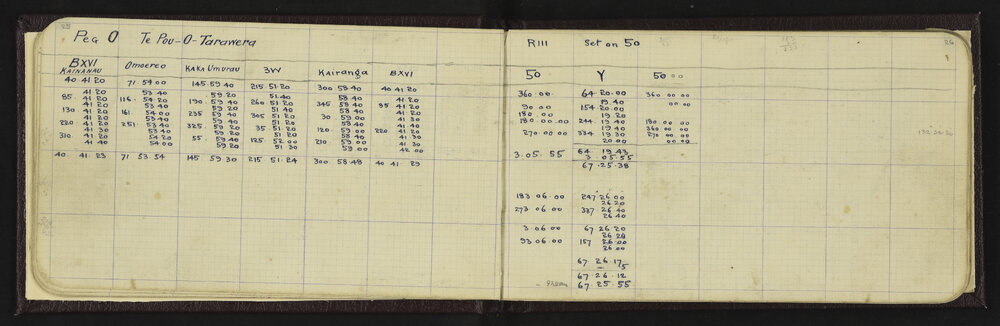 25
Peg O Te Pou-O-Tarawera
BXVI Omoereo Kaka Umurau 3W Kairanga BXVI
Kainanau
40 41 20 71. 54 00 145. 59 40 215 51. 20 300 58. 40 40 41 20
41 20 53 40 59 20 51. 40 58 40 41 20
85. 41 20 116. 54 20 190. 59 40 260 51 20 345 58 40 85 41 20
41 20 53 40 59 20 51 40 58 40 41 20
130 41 20 161. 54 00 235 59 40 305 51 20 30 59 00 41 30
220 41 20 251. 53 40 325. 59 20 35. 51 20 120. 59 00 220 41 20
310 41 20 54 20 55. 59 40 125 52 00 210. 59 00 41 30
41 40 54 00 59 20 51 30 59 00 42 00
40 41 23 71 53 54 145 59 30 215 51. 24 300 58. 48 40 41 29
26
RIII Set on 50
50 Y 50 00
360. 00 64 20. 00 360 00 00
19 40 00 00
90 00 154 20. 00
180 00 19. 20
180 00. 00 244. 19 40 180 00 00
19 40 360 00 00
270 00 00 334 19 30 270 00 00
20 00 00 00
3. 05. 55 64 19 43
3 05. 55
67. 25. 38
183 06. 00 247 26 00
26 20
273. 06. 00 337 26 40
26 40
3. 06 00 67 26 20
26 26
93 06. 00 157 26 00
26 00
67. 26. 17
5
67. 26. 12
67. 25. 55